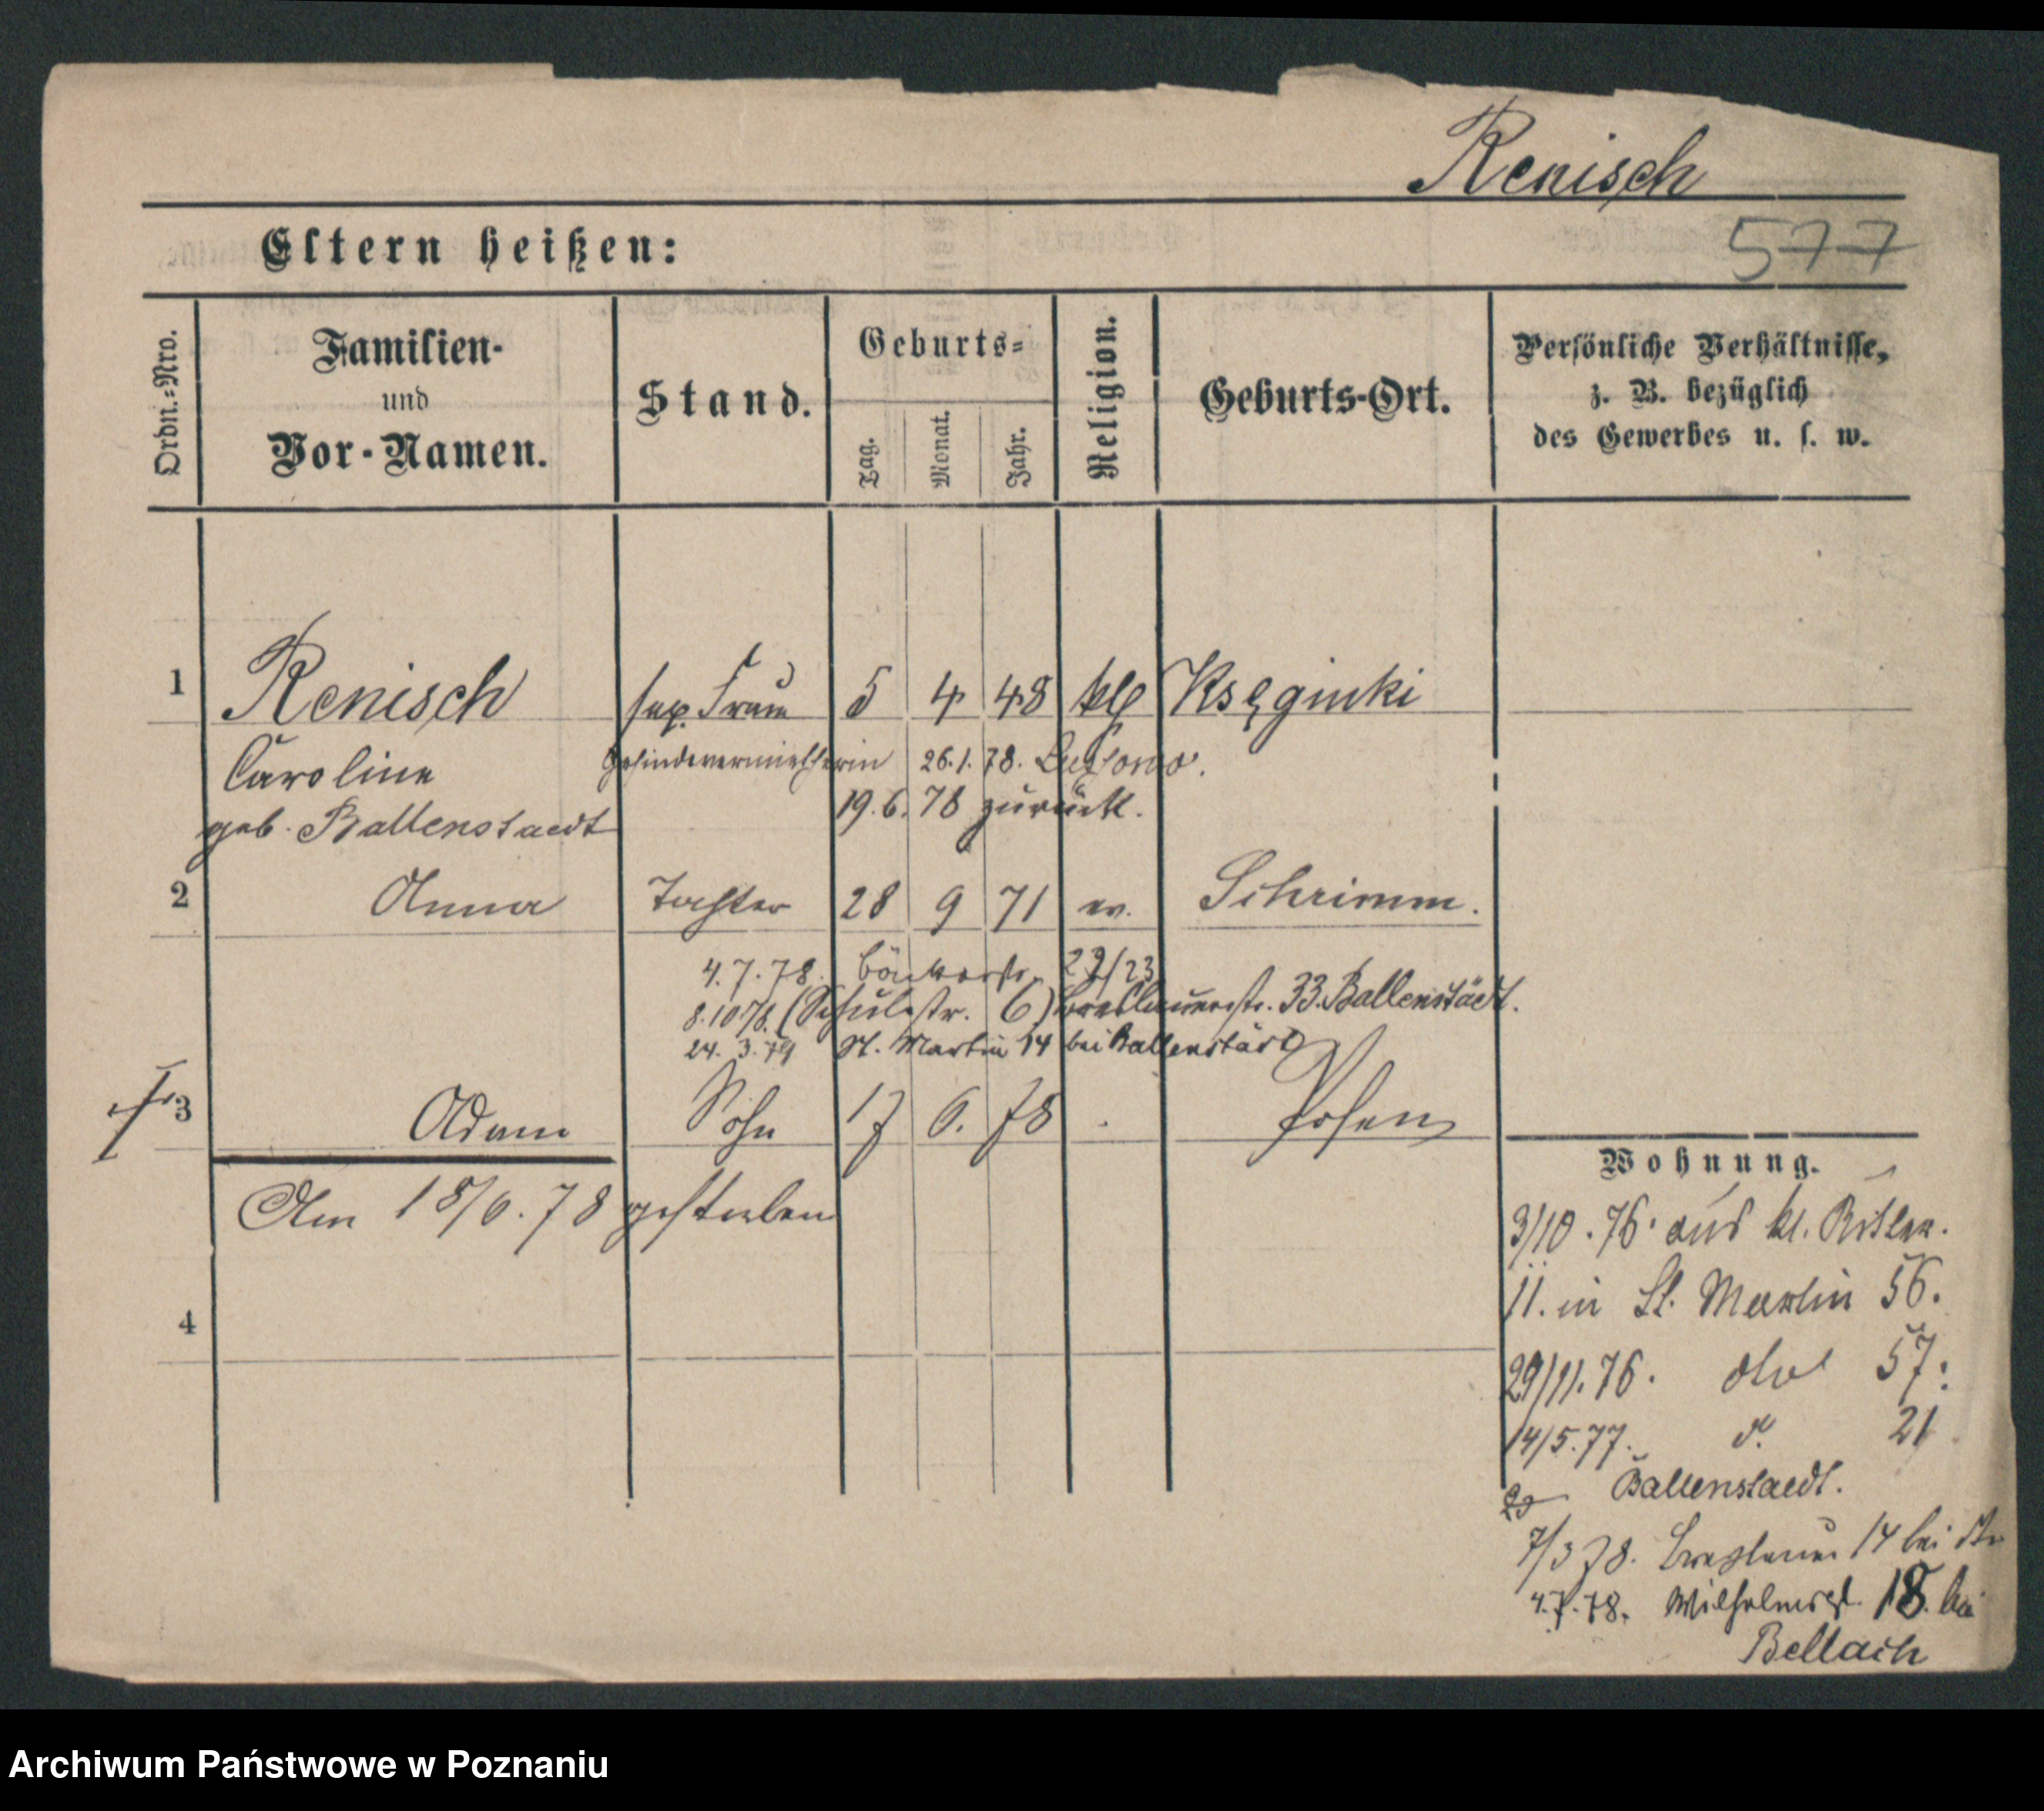 Renisch
577
Eltern heißen:
Ordn.-Nro.
Familien-
und
Vor-Namen.
Stand.
Geburts-
Tag.
Monat.
Jahr.
Religion.
Geburts-Ort.
Persönliche Verhältnisse,
z. B. bezüglich
des Gewerbes u. s. w.
1 Renisch sep. Frau 5 4 48 Ksęginki
Caroline Gesindevermietherin 26.1.78.
geb. Ballenstaedt 19.6.78 zurück.
2 Anna Tochter 28 9 71 ev. Schrimm.
4.7.78. Bäckerstr. 22/23
8.10.78. (Schulstr. 6) Breslauerstr. 33. Ballenstädt.
24.3.79 St. Martin 14 bei Ballenstädt
3 Adam Sohn 17 6. 78 Posen
Am 18/6.78 gestorben
4
Wohnung.
3/10.76. aus kl. Ritter.
11. in St. Martin 56.
29/11.76. 57.
14/5.77. d. 21
Ballenstaedt.
7/3 78. Breslauer 14 bei
4.7.78. Wilhelmspl. 18. bei
Bellach
Archiwum Państwowe w Poznaniu